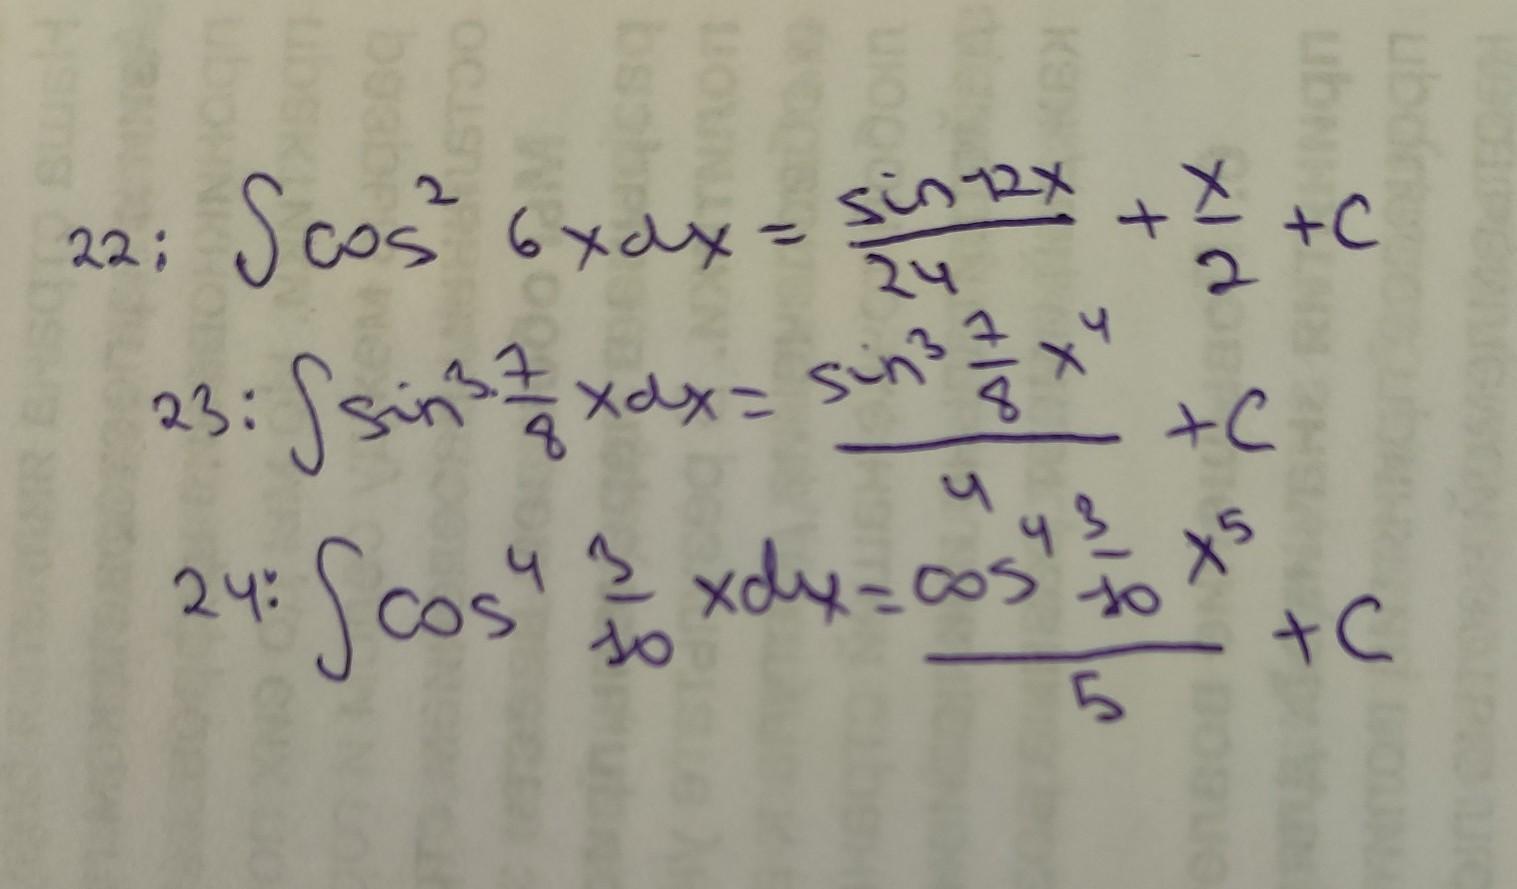 22: ∫cos² 6xdx = sin12x/24 + x/2 + C
23: ∫sin³ 7/8 xdx = sin³ 7/8 x⁴/4 + C
24: ∫cos⁴ 3/10 xdx = cos⁴ 3/10 x⁵/5 + C